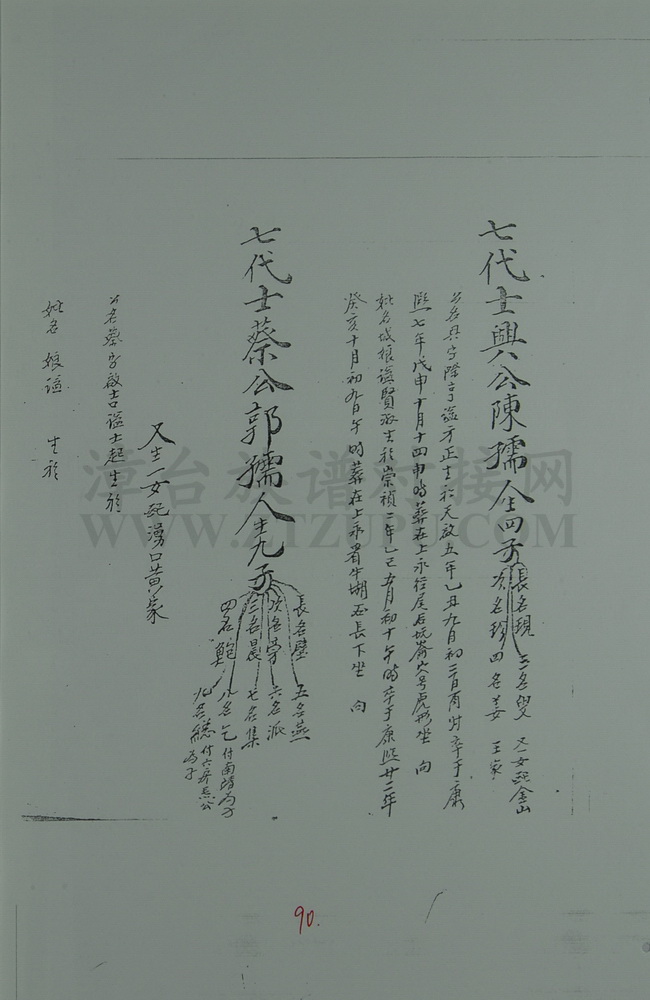 七代士興公陳孺人生四子
長名現
次名珍
三名叟
四名姜
又一女配金山
王家
公名興字隆亨諡方正生於天啟五年乙丑九月初二日酉时卒于康
熙七年戊申十月十四申時葬在上永径尾后坑崙穴号虎形坐 向
妣名城娘諡賢淑生於崇禎二年己巳五月初十午時卒于康熙廿二年
癸亥十月初九日午时葬在上永眉牛湖正長下坐 向
七代士蔡公郭孺人生九子
長名壁
次名勞
三名晨
四名鮑
五名燕
六名派
七名集
八名乞 付南靖為子
九名總 付六房 公
為子
又生一女配湧口黄家
公名蔡字啟吉諡士起生於
妣名 娘諡 生於
漳台族谱对接网
WWW.ZTZUPU.COM
90.